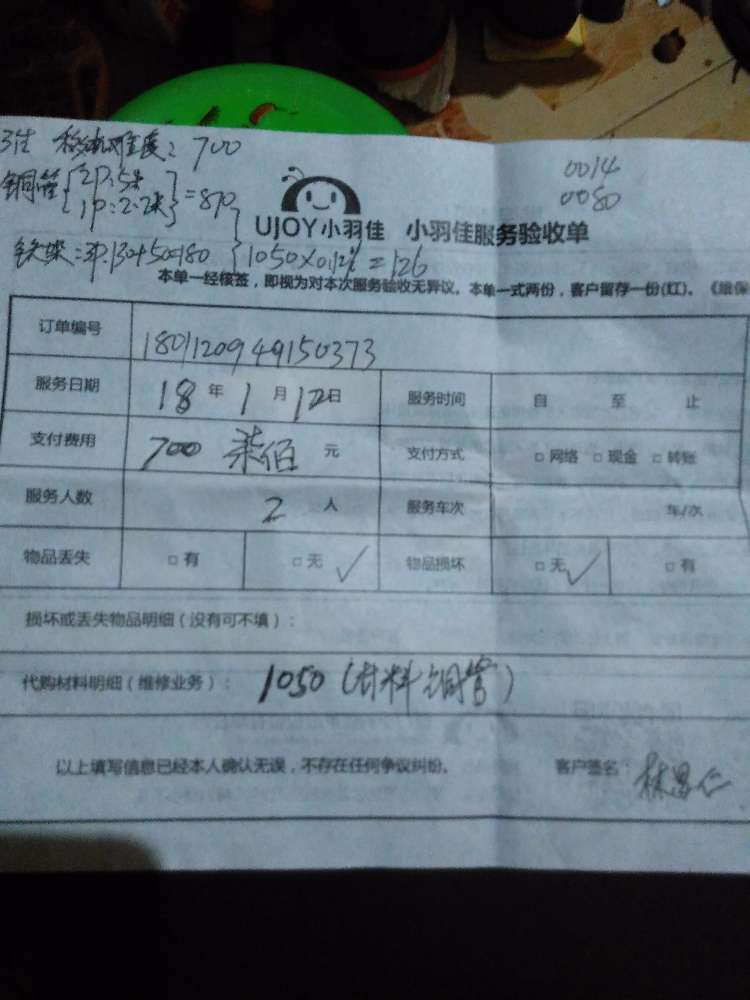 移机难度:700
0014
0080
铜管{2P:5米 1P:2.2米}=870
UJOY小羽佳 小羽佳服务验收单
铁架:2P.130+50=180 }1050×0.12%=126
本单一经核签,即视为对本次服务验收无异议。本单一式两份,客户留存一份(红)。《维保
订单编号 1801120949150373
服务日期 18年1月12日 服务时间 自 至 止
支付费用 700 柒佰 元 支付方式 □网络 □现金 □转账
服务人数 2人 服务车次 车/次
物品丢失 □有 □无√ 物品损坏 □无√ □有
损坏或丢失物品明细(没有可不填):
代购材料明细(维修业务): 1050(材料铜管)
以上填写信息已经本人确认无误,不存在任何争议纠纷。 客户签名: 林昌仁